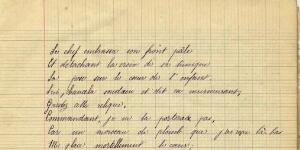 Le chef embrassa son front pâle
Et détachant la croix de sa tunique
La posa sur le cœur de l'enfant.
dit en murmurant,
Gardez cette relique,
Commandant, je ne la porterai pas,
Car un morceau de plomb que j'ai reçu là-bas
M'a glacé mortellement le cœur.